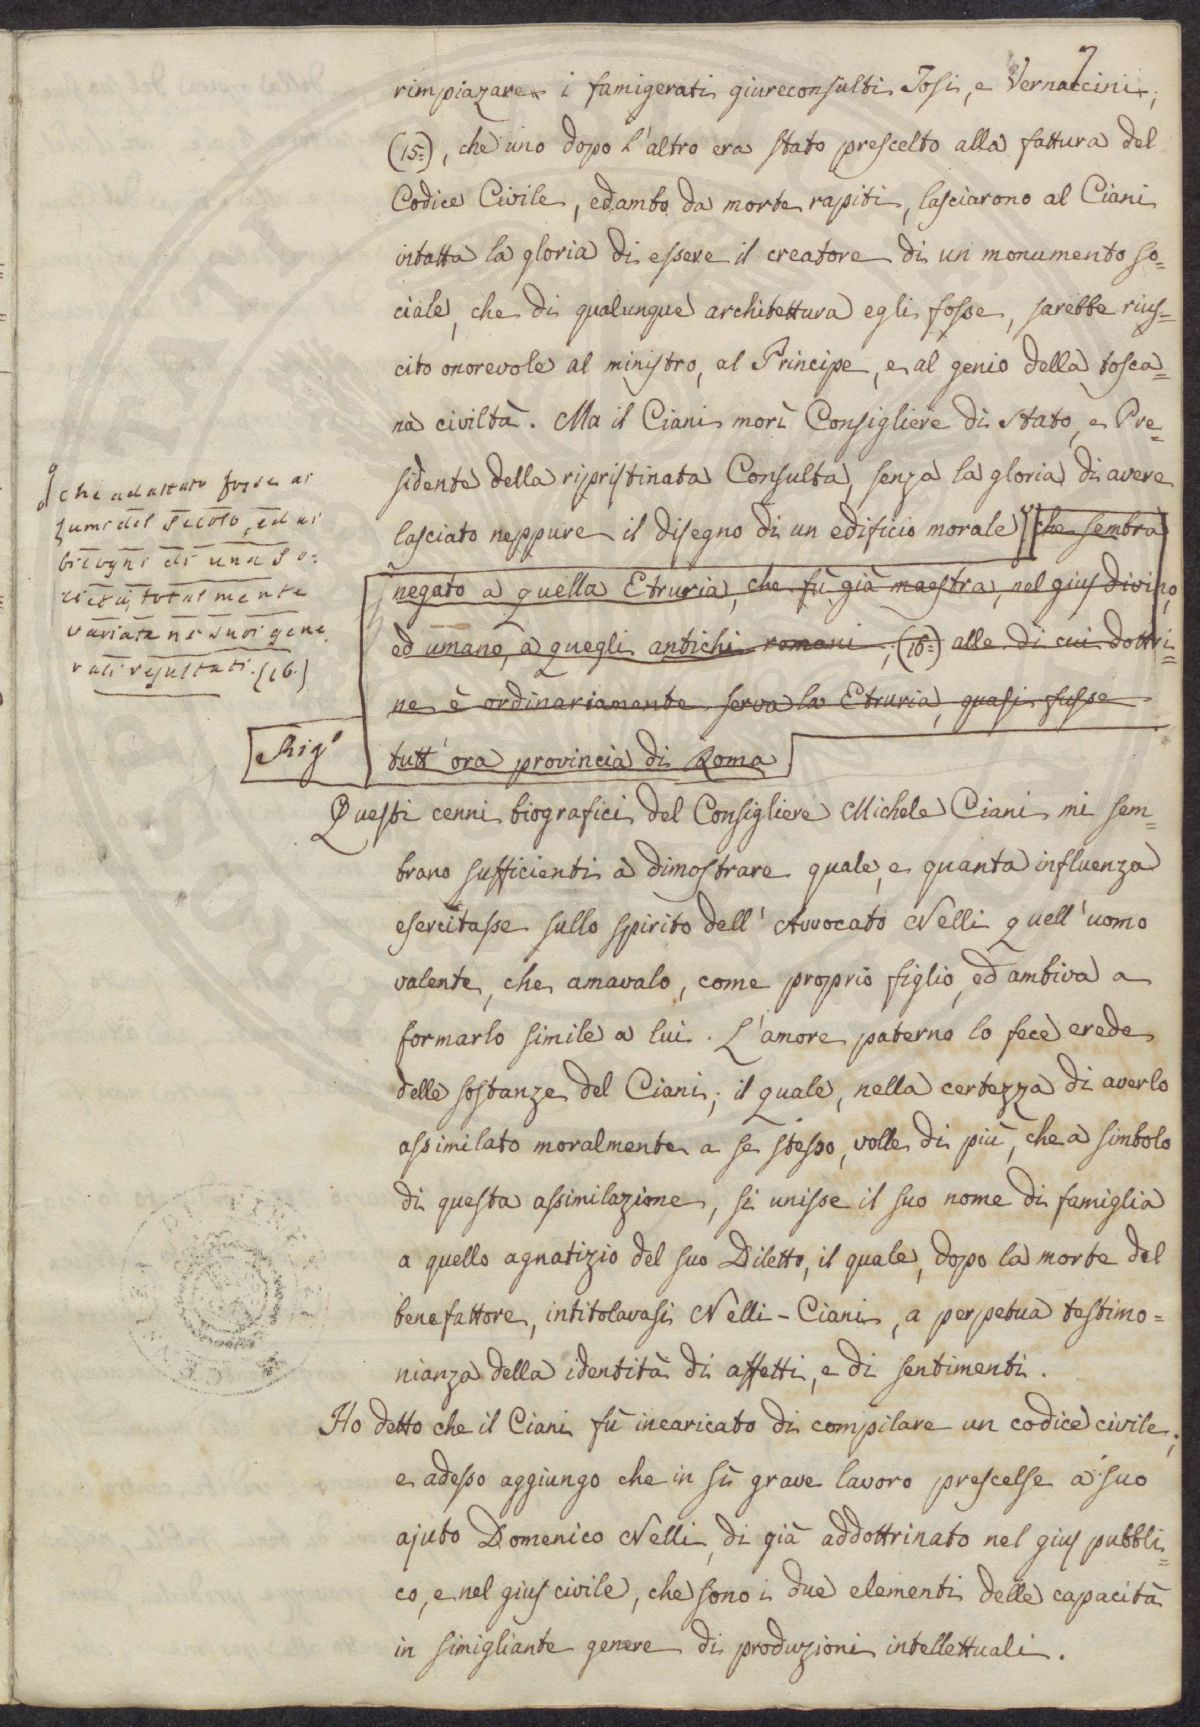 7
rimpiazare i famigerati giureconsulti Tosi, e Vernaccini,
(15=), che uno dopo l'altro era stato prescelto alla fattura del
Codice Civile, ed ambo da morte rapiti, lasciarono al Ciani
intatta la gloria di essere il creatore di un monumento so=
ciale, che di qualunque architettura egli fosse, sarebbe rius=
cito onorevole al ministro, al Principe, e al genio della tosca=
na civiltà. Ma il Ciani morì Consigliere di Stato, e Pre=
sidente della ripristinata Consulta, senza la gloria di avere
lasciato neppure il disegno di un edificio morale che sembra
negato a quella Etruria, che fù già maestra, nel gius divino,
ed umano, a quegli antichi romani, (16=) alle di cui dottri=
ne è ordinariamente serva la Etruria, quasi fosse
tutt'ora provincia di Roma
che adattato fosse ai
lumi del secolo, ed ai
bisogni di una so=
cietà totalmente
variata ne suoi gene
rali resultati. (16.)
Rigo
Questi cenni biografici del Consigliere Michele Ciani mi sem=
brano sufficienti a dimostrare quale, e quanta influenza
esercitasse sullo spirito dell'Avvocato Nelli quell'uomo
valente, che amavalo, come proprio figlio, ed ambiva a
formarlo simile a lui. L'amore paterno lo fece erede
delle sostanze del Ciani; il quale, nella certezza di averlo
assimilato moralmente a se stesso, volle di più, che a simbolo
di questa assimilazione, si unisse il suo nome di famiglia
a quello agnatizio del suo Diletto, il quale, dopo la morte del
benefattore, intitolavasi Nelli-Ciani, a perpetua testimo=
nianza della identità di affetti, e di sentimenti.
Ho detto che il Ciani fù incaricato di compilare un codice civile;
e adesso aggiungo che in sì grave lavoro prescelse a suo
ajuto Domenico Nelli, di già addottrinato nel gius pubbli=
co, e nel gius civile, che sono i due elementi delle capacità
in simigliante genere di produzioni intellettuali.